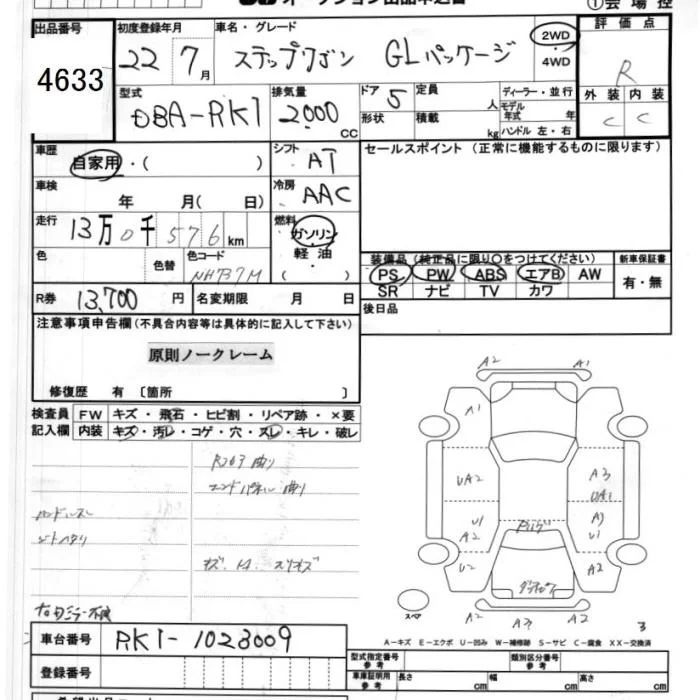 オークション出品申込書
①会場控
出品番号
4633
初度登録年月
22 7月
車名・グレード
ステップワゴン GLパッケージ
2WD
・
4WD
評価点
R
外装 内装
C C
型式
DBA-RK1
排気量
2000 CC
ドア 5
形状
定員 人
積載 kg
ディーラー・並行
モデル年式 年
ハンドル 左・右
車歴
自家用・( )
シフト
AT
セールスポイント (正常に機能するものに限ります)
車検
年 月( 日)
冷房
AAC
走行
13万0千576km
燃料
ガソリン
・
軽油
・
( )
色
色替
色コード
NH737M
装備品 (純正品に限り○をつけてください)
PS PW ABS エアB AW
SR ナビ TV カワ
新車保証書
有・無
R券 13,700 円
名変期限 月 日
後日品
注意事項申告欄(不具合内容等は具体的に記入して下さい)
原則ノークレーム
修復歴 有 〔箇所 〕
検査員
記入欄
FW キズ・飛石・ヒビ割・リペア跡・×要
内装 キズ・汚レ・コゲ・穴・スレ・キレ・破レ
エンドパネル曲り
ハンドルスレ
シートヘタリ
キズ
右ドアミラー不良
A2 A1
A1
UA2
A3
UA1
U1
A2
U2
A2
スペア
A2 A3 A2
3
A-キズ E-エクボ U-凹み W-補修跡 S-サビ C-腐食 XX-交換済
車台番号
RK1-1023009
登録番号
型式指定番号
参考
類別区分番号
参考
車庫証明用
参考
長さ cm
幅 cm
高さ cm